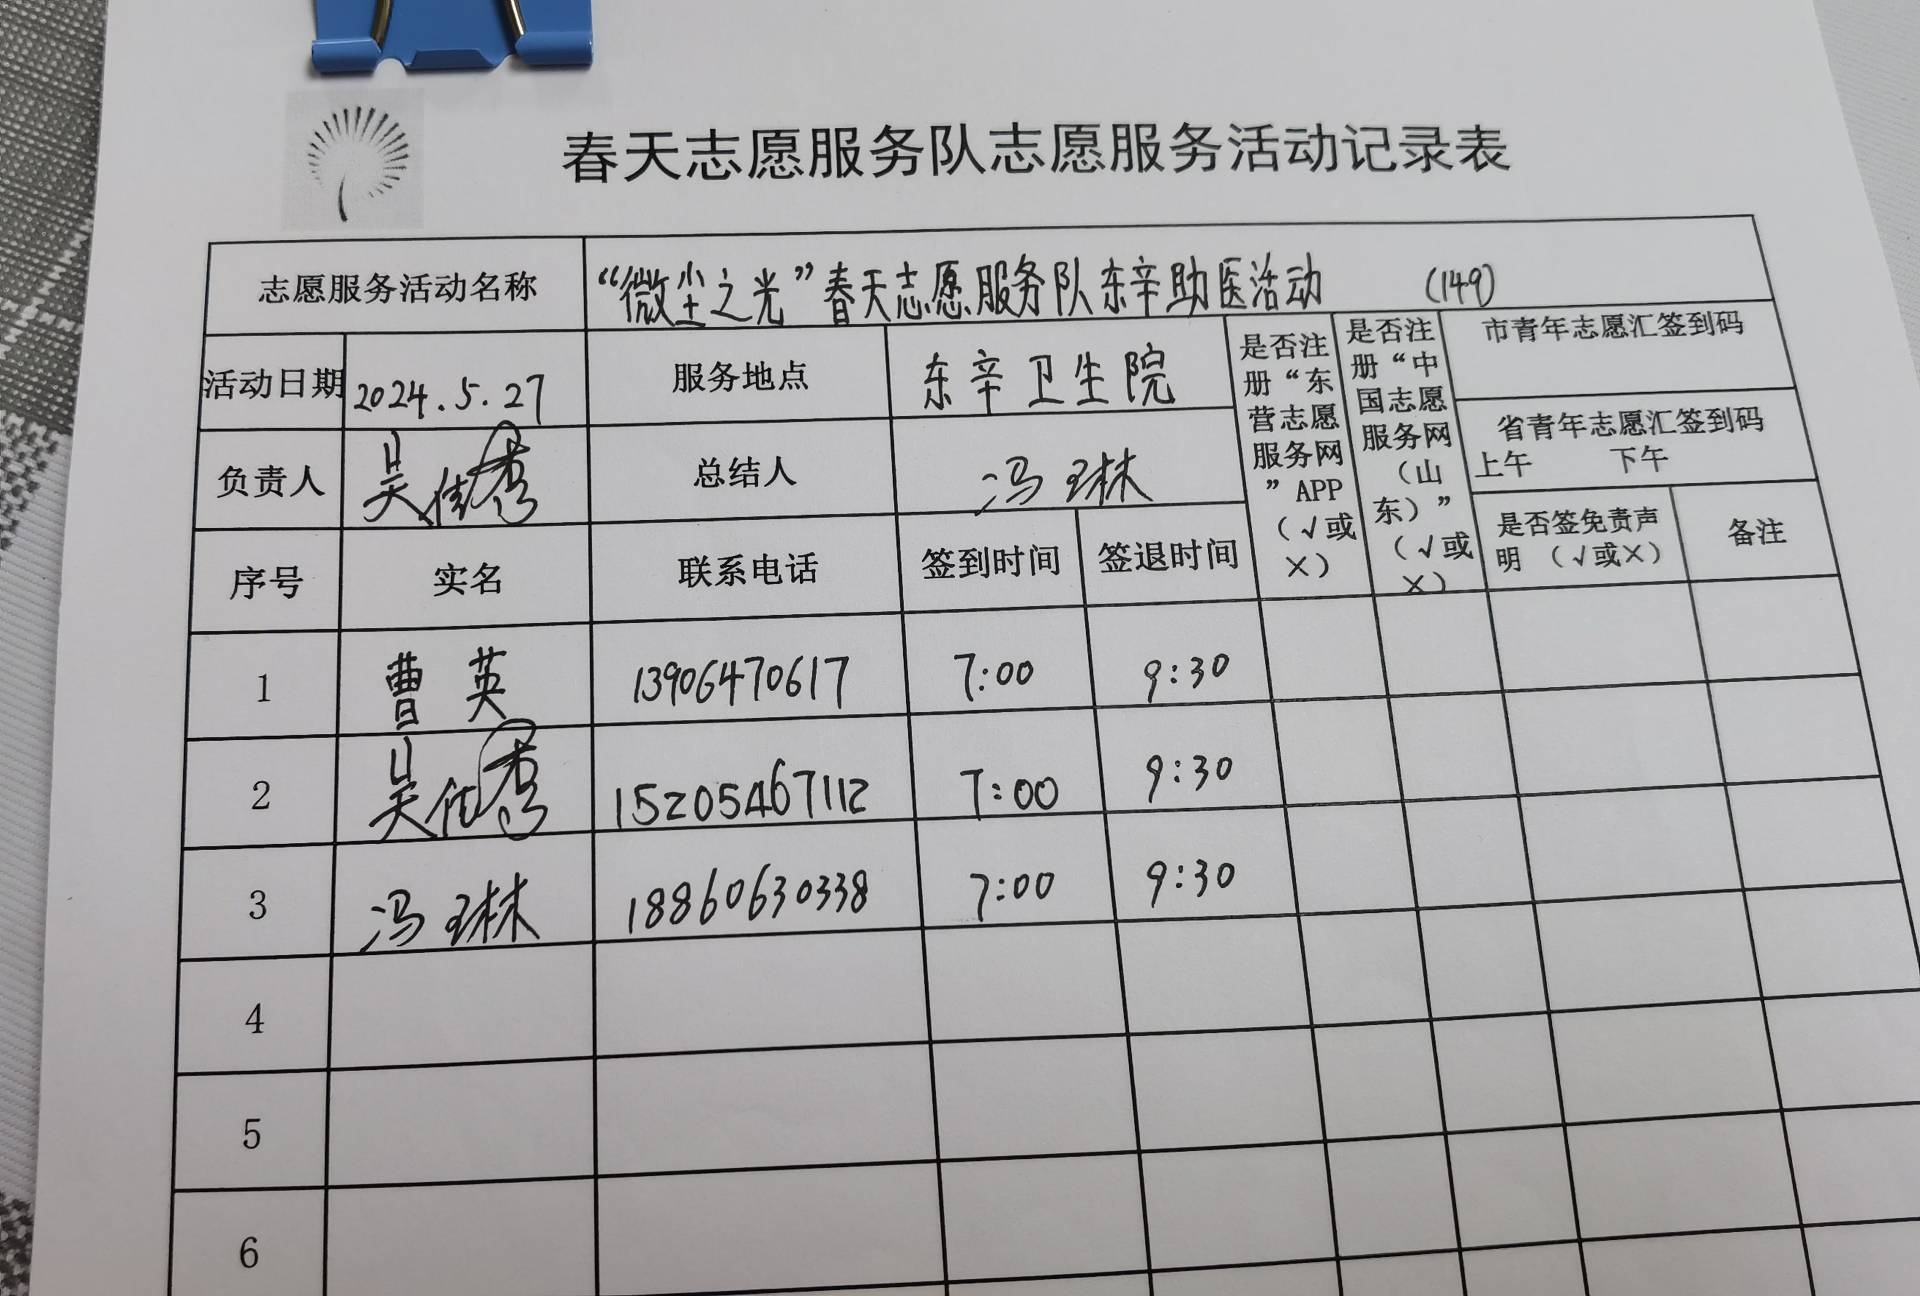 春天志愿服务队志愿服务活动记录表
志愿服务活动名称 “微尘之光”春天志愿服务队东辛助医活动 (149)
活动日期 2024.5.27 服务地点 东辛卫生院
是否注册“东营志愿服务网”APP（√或×）
是否注册“中国志愿服务网（山东）”（√或×）
市青年志愿汇签到码
省青年志愿汇签到码
上午 下午
负责人 吴佳秀 总结人 冯琳
序号 实名 联系电话 签到时间 签退时间 是否签免责声明（√或×） 备注
1 曹英 13906470617 7:00 9:30
2 吴佳秀 15205467112 7:00 9:30
3 冯琳 18860630338 7:00 9:30
4
5
6